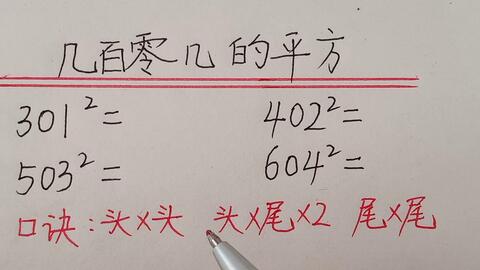 几百零几的平方
301²= 402²=
503²= 604²=
口诀:头×头 头×尾×2 尾×尾